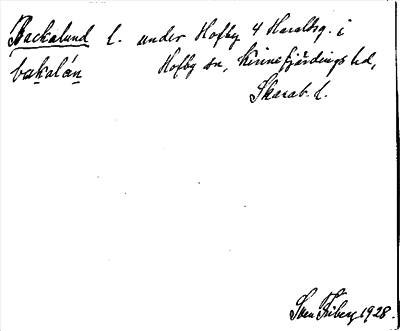 Backalund l. under Hofby 4 Haraldsg. i
bakalán Hofby sn, Kinnefjärdings hd,
Skarab. l.
Sven Friberg 1928.